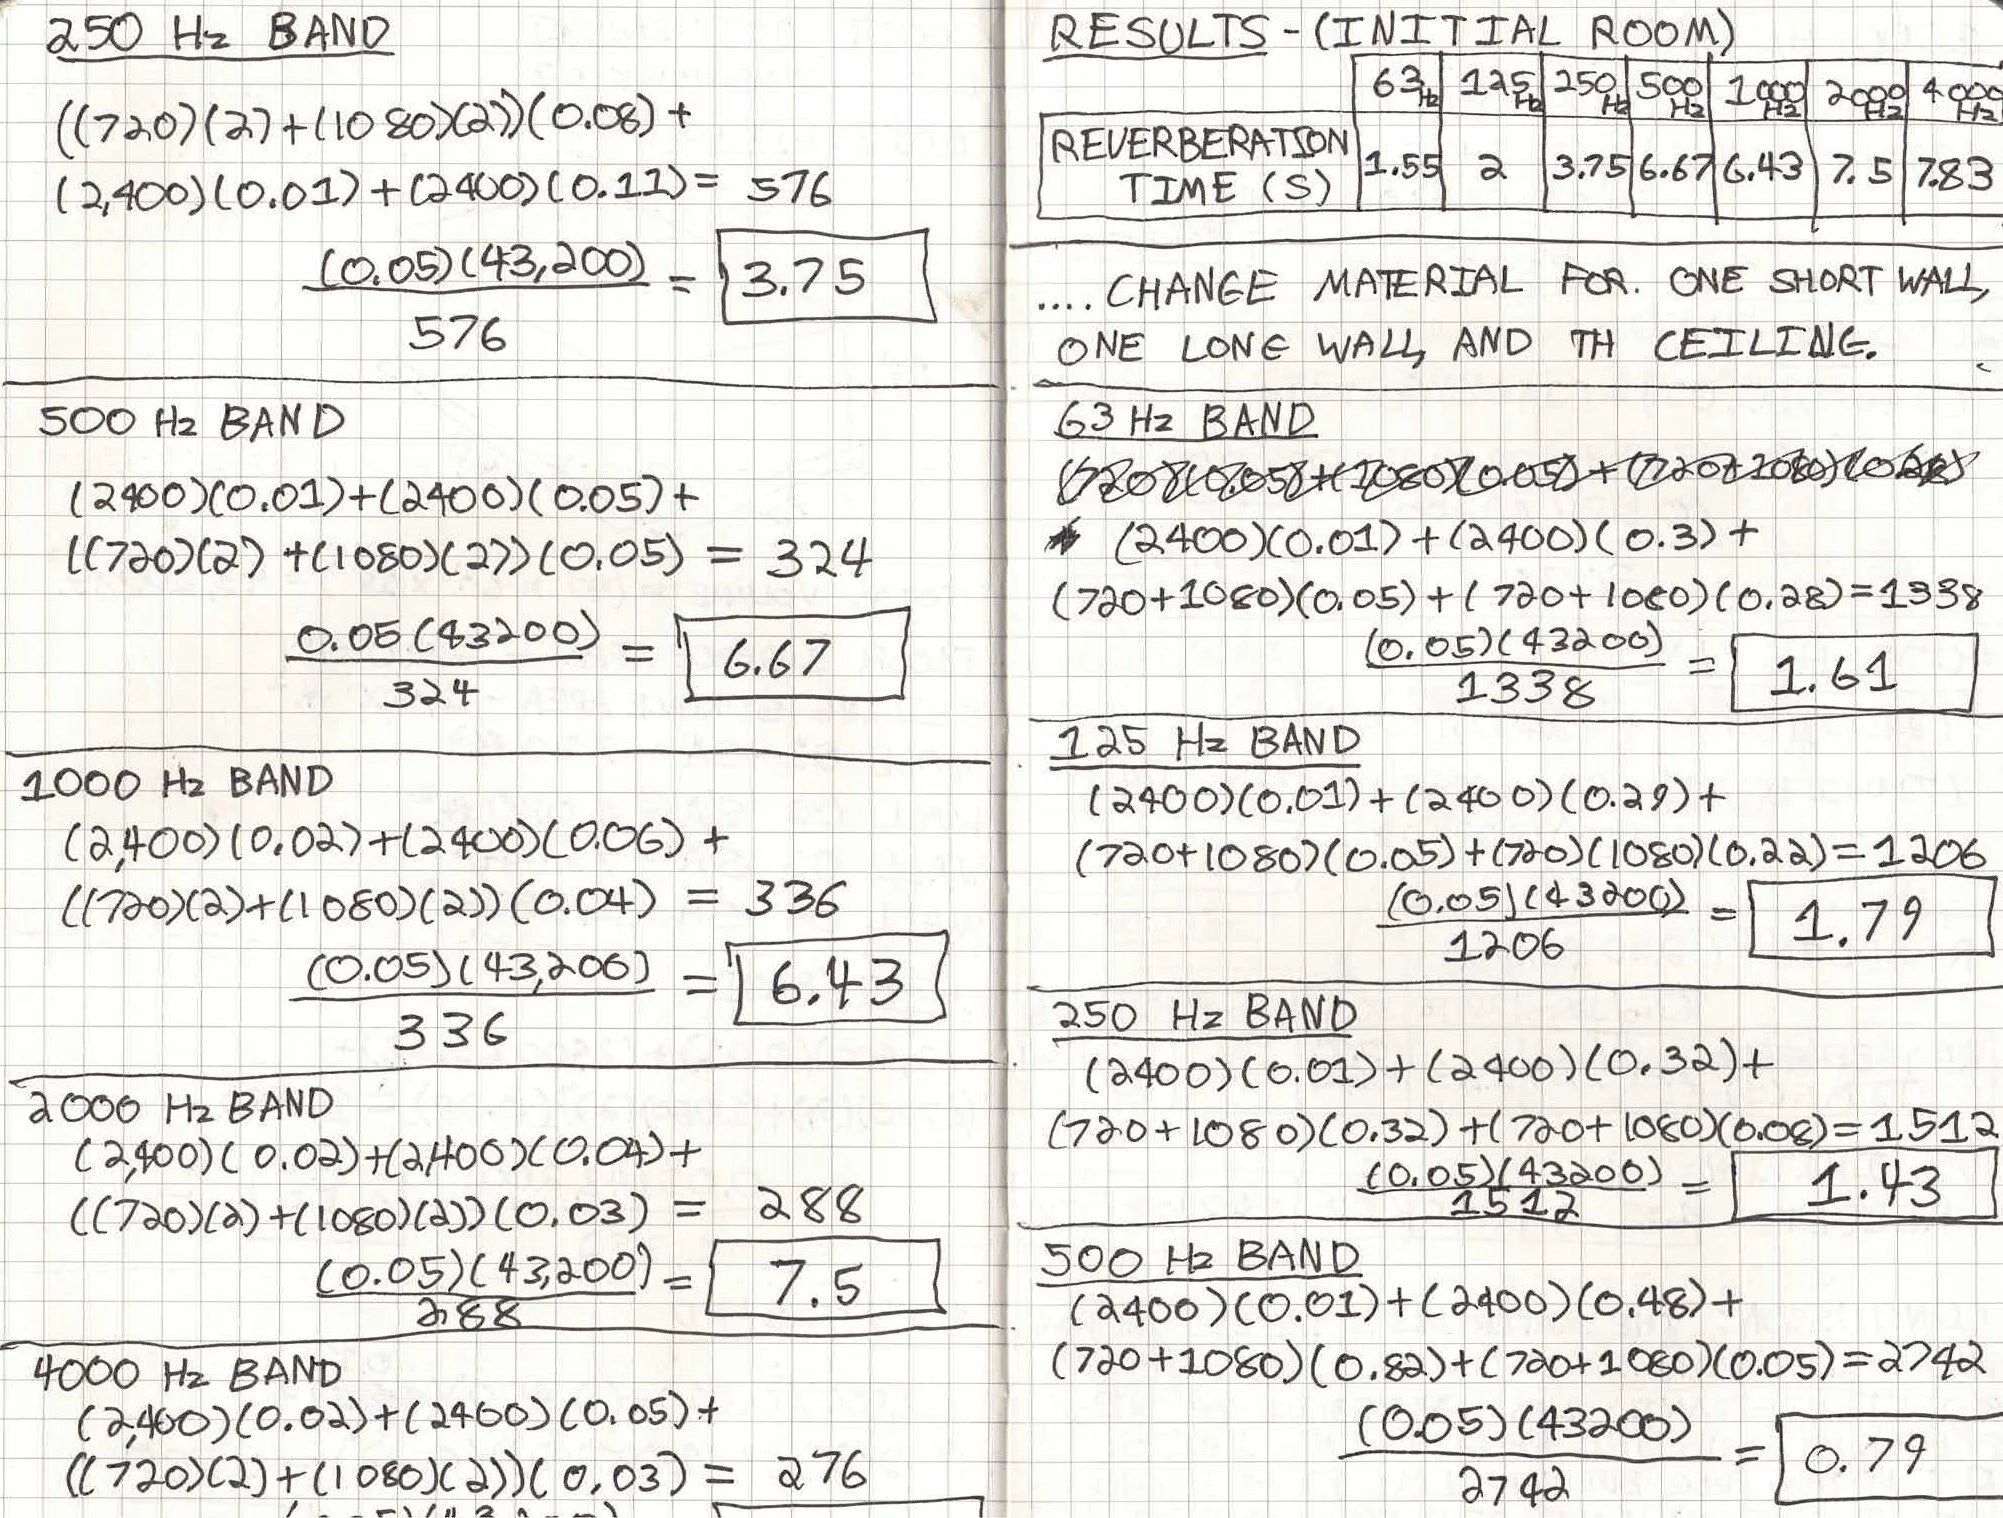 250 Hz BAND
((720)(2)+(1080)(2))(0.08)+
(2,400)(0.01)+(2400)(0.11)= 576
(0.05)(43,200) = 3.75
576
500 Hz BAND
(2400)(0.01)+(2400)(0.05)+
((720)(2)+(1080)(2))(0.05) = 324
0.05(43200) = 6.67
324
1000 Hz BAND
(2,400)(0.02)+(2400)(0.06)+
((720)(2)+(1080)(2))(0.04) = 336
(0.05)(43,200) = 6.43
336
2000 Hz BAND
(2,400)(0.02)+(2,400)(0.04)+
((720)(2)+(1080)(2))(0.03) = 288
(0.05)(43,200) = 7.5
288
4000 Hz BAND
(2,400)(0.02)+(2400)(0.05)+
((720)(2)+(1080)(2))(0.03) = 276
RESULTS - (INITIAL ROOM)
63 Hz 125 Hz 250 Hz 500 Hz 1000 Hz 2000 Hz 4000 Hz
REVERBERATION
TIME (S) 1.55 2 3.75 6.67 6.43 7.5 7.83
.... CHANGE MATERIAL FOR. ONE SHORT WALL,
ONE LONG WALL, AND TH CEILING.
63 Hz BAND
(720)(0.05)+(1080)(0.05)+(720+1080)(0.28)
(2400)(0.01)+(2400)(0.3)+
(720+1080)(0.05)+(720+1080)(0.28)=1338
(0.05)(43200) = 1.61
1338
125 Hz BAND
(2400)(0.01)+(2400)(0.29)+
(720+1080)(0.05)+(720)(1080)(0.22)=1206
(0.05)(43200) = 1.79
1206
250 Hz BAND
(2400)(0.01)+(2400)(0.32)+
(720+1080)(0.32)+(720+1080)(0.08)=1512
(0.05)(43200) = 1.43
1512
500 Hz BAND
(2400)(0.01)+(2400)(0.48)+
(720+1080)(0.82)+(720+1080)(0.05)=2742
(0.05)(43200) = 0.79
2742